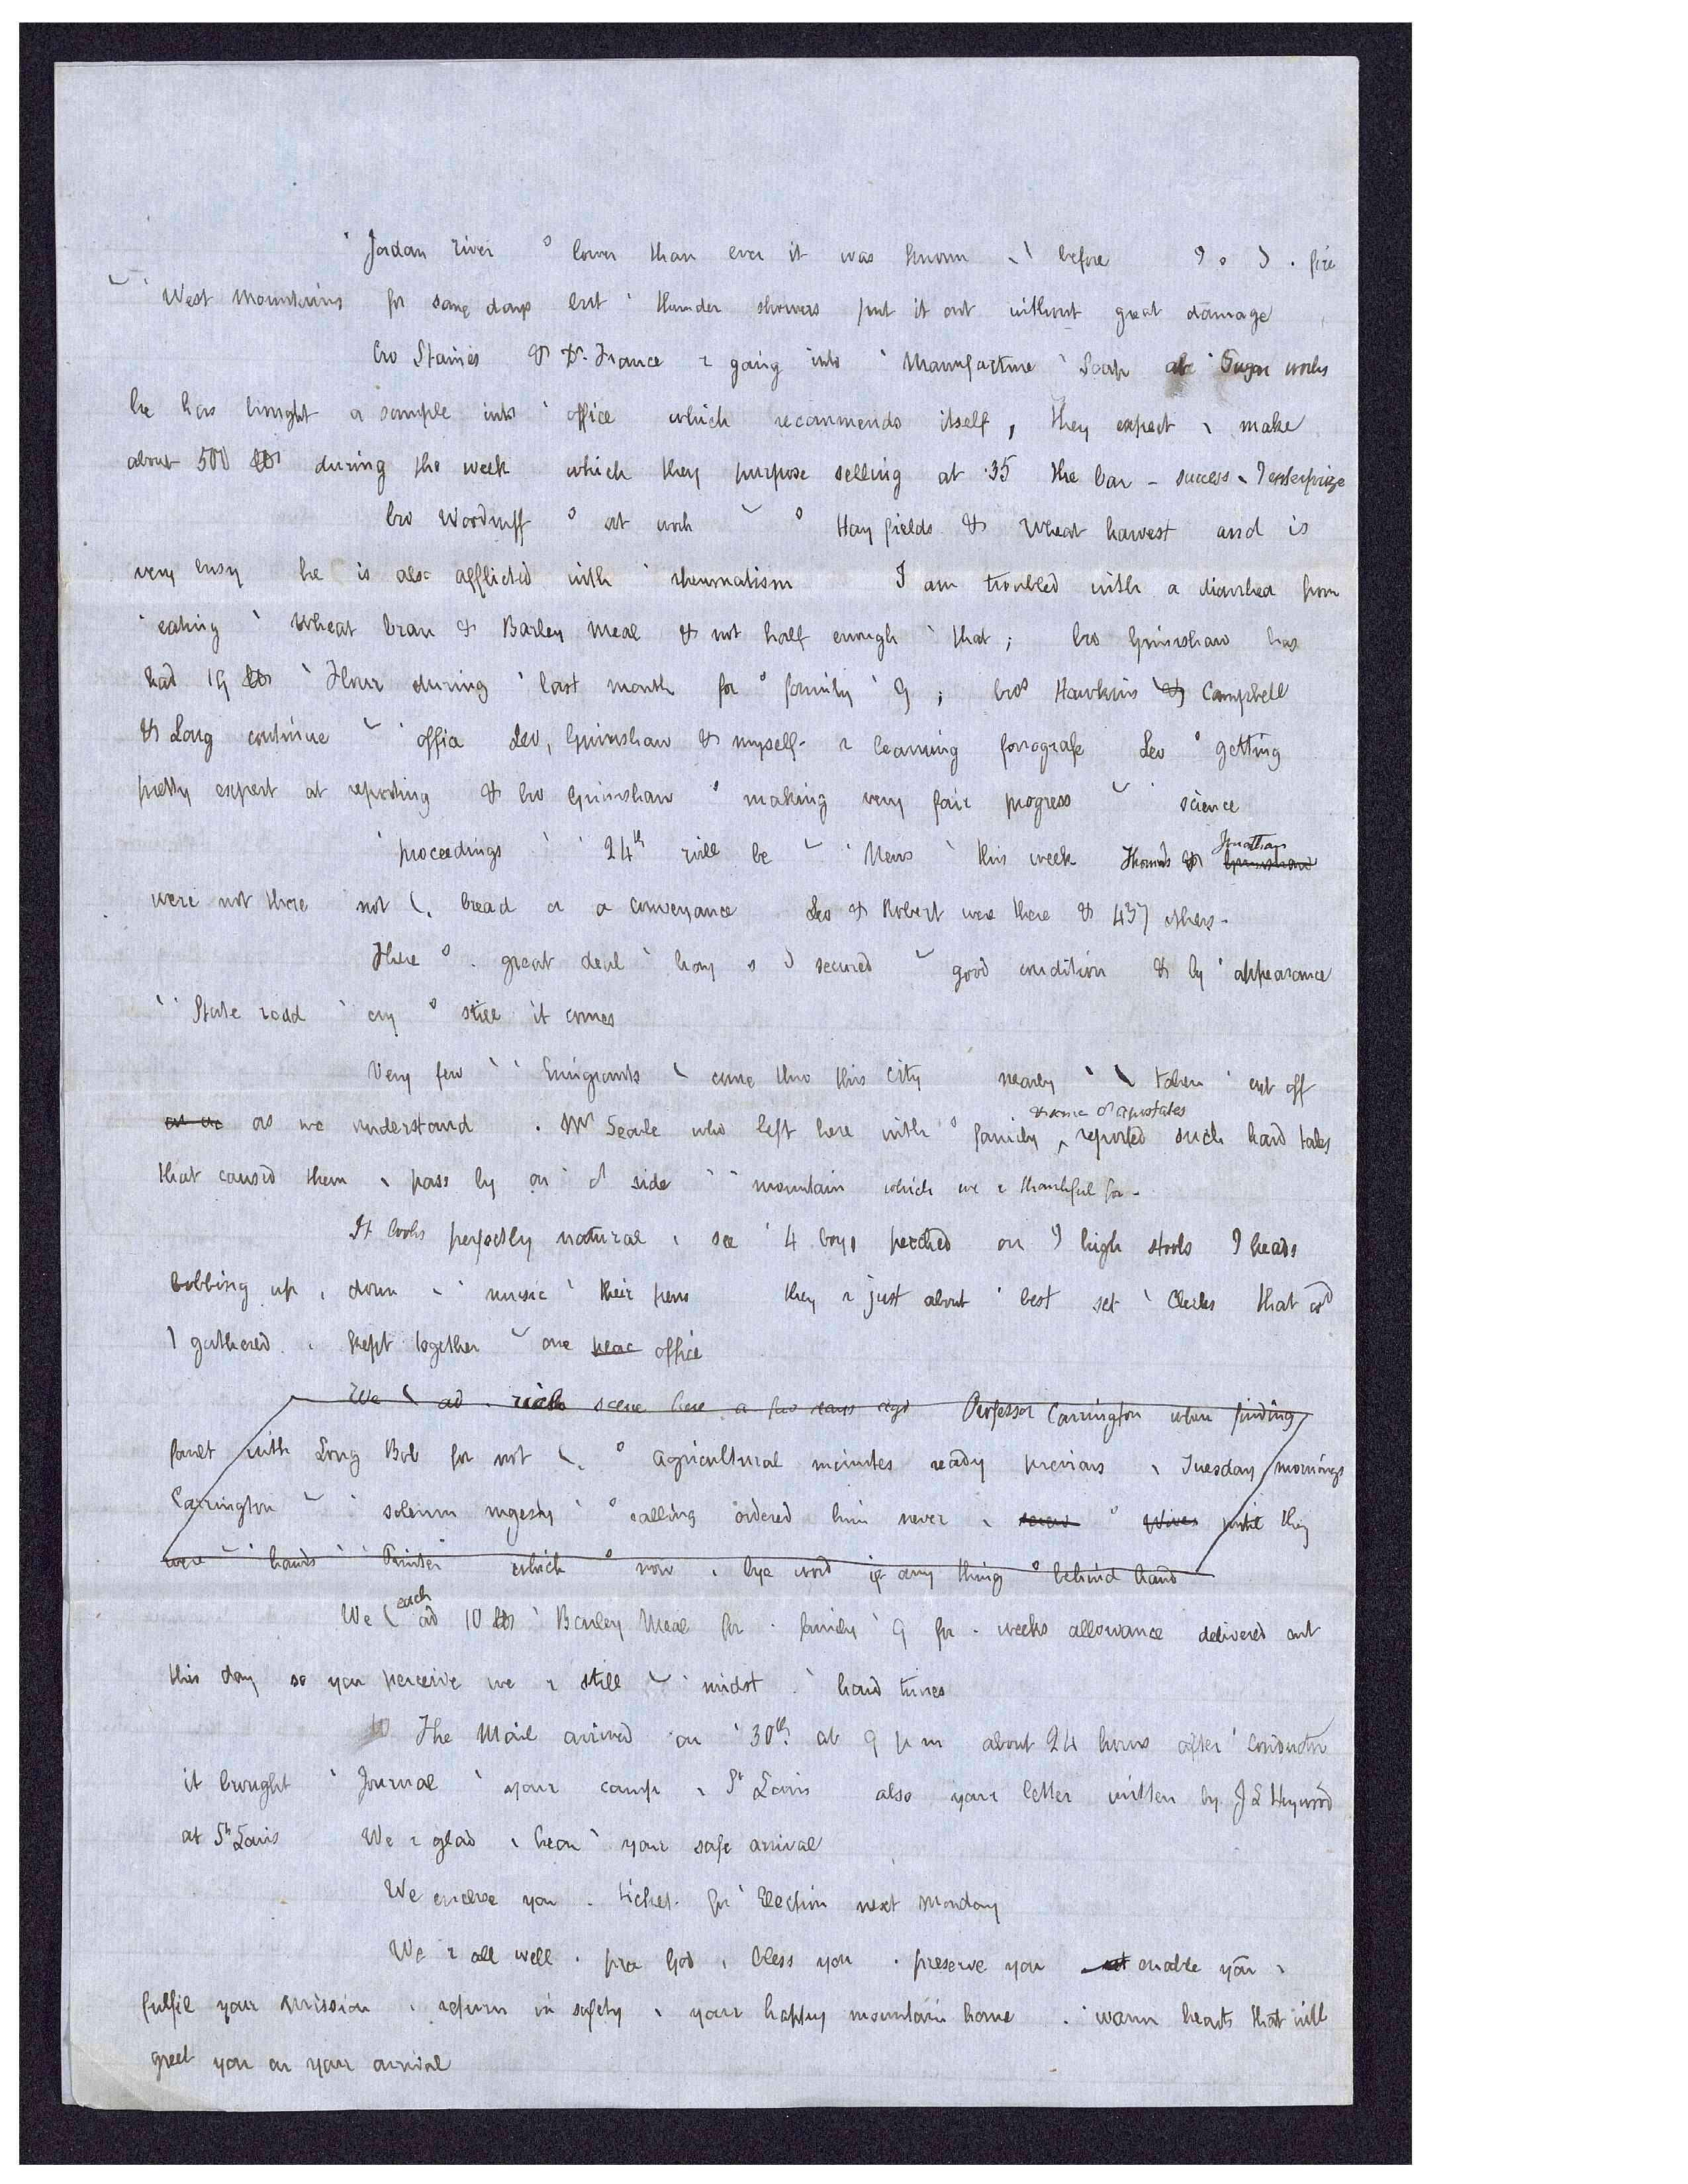 Jordan river lower than ever it was known before fire
West Mountains for some days but thunder showers put it out without great damage
bro Staines & Dr. France going into Manufacture Soap Sugar works
he has brought a sample into office which recommends itself, they expect make
about 500 lbs during the week which they purpose selling at 35 the bar – success enterprize
bro Woodruff at work Hay fields & Wheat harvest and is
very busy he is also afflicted with rheumatism I am troubled with a diarrhea from
eating Wheat bran & Barley Meal & not half enough that; bro Grimshaw has
had 19 lbs Flour during last month for family 9; bros Hawkins & Campbell
& Long continue office Leo, Grimshaw & myself learning fonografe Leo getting
pretty expert at reporting & bro Grimshaw making very fair progress science
proceedings 24th will be News this week Thomas & Jonathan
were not there not bread or a conveyance Leo & Robert were there & 437 others.
There great deal hay secured good condition & by appearance
State road cry still it comes
Very few Emigrants come thro this City nearly taken cut off
as we understand Mr Searle who left here with family & some apostates reported such hard tales
that caused them pass by on side mountain which we thankful for.
It looks perfectly natural see 4 boys perched on high stools heads
bobbing up down music their pens they just about best set Clerks that cod
gathered kept together one office
We ad rich scene here a few days ago Professor Carrington when finding
fault with Long Bob for not agricultural minutes ready previous Tuesday mornings
Carrington solemn calling ordered him never until they
were hands Printer which now bye word if any thing behind hand
We each ad 10 lbs Barley Meal for family 9 for weeks allowance delivered out
this day so you perceive we still midst hard times
The Mail arrived on 30th at 9 p m about 24 hours after Conductor
it brought Journal your camp St Louis also your letter written by J L Heywood
at St Louis We glad hear your safe arrival
We enclose you ticket for Election next Monday
We all well pra God bless you preserve you enable you
fulfil your mission return in safety your happy mountain home warm hearts that will
greet you on your arrival